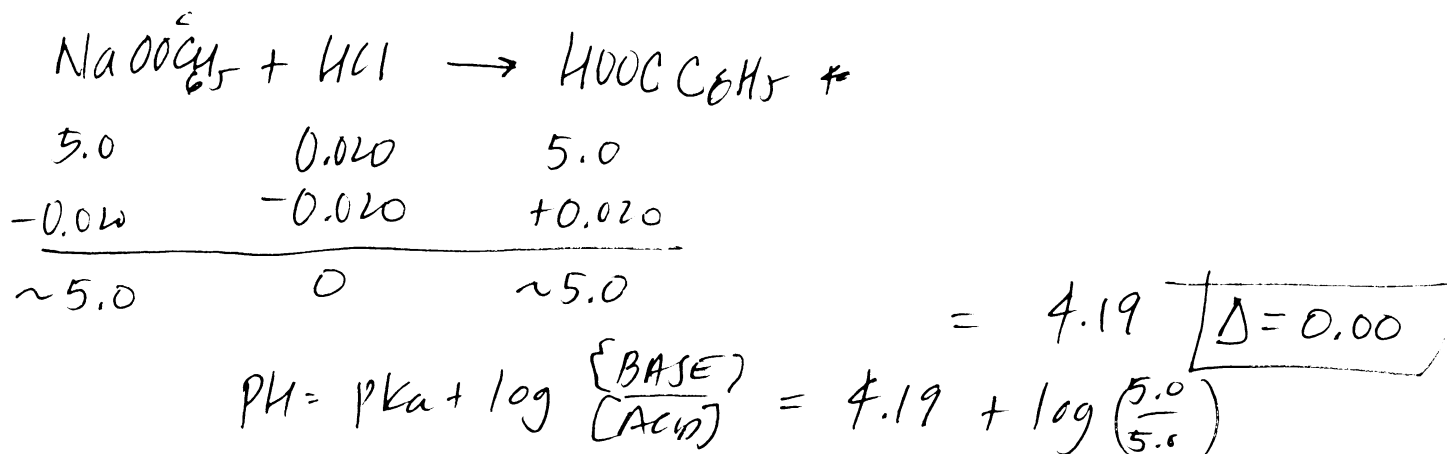 NaOOCC6H5 + HCl → HOOCC6H5 +
5.0 0.020 5.0
-0.020 -0.020 +0.020
~5.0 0 ~5.0
= 4.19 Δ= 0.00
pH= pKa + log [BASE]/[ACID] = 4.19 + log (5.0/5.0)